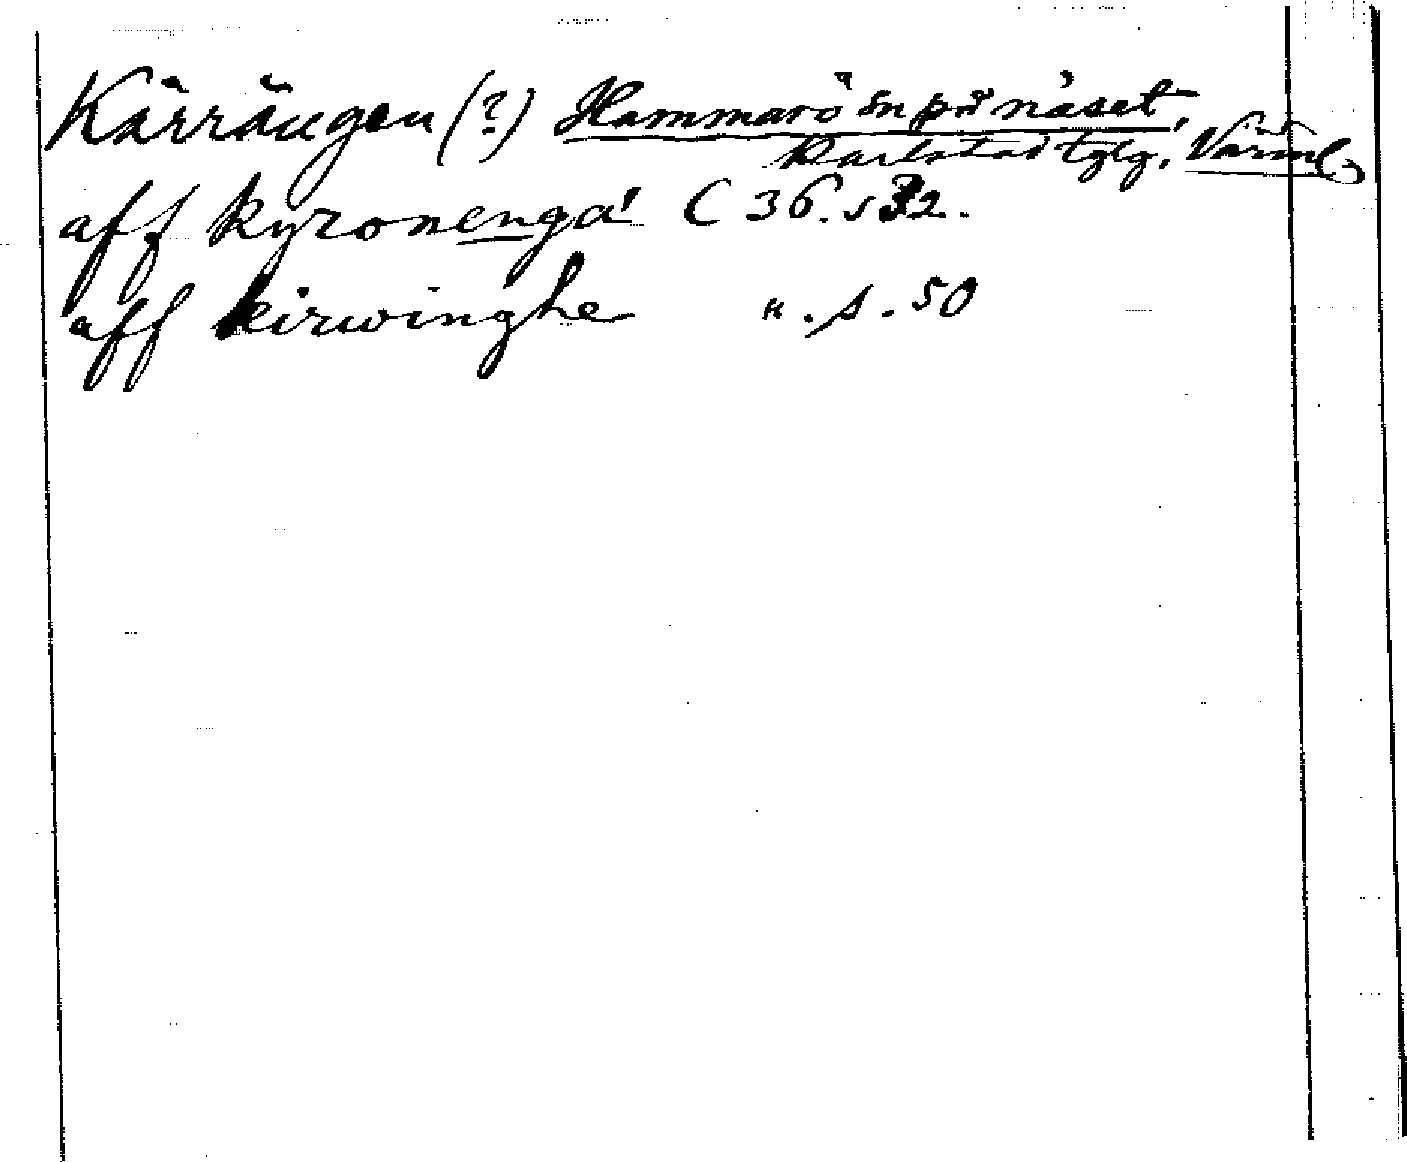 Kärrängen (?) Hammarö sn på näset,
Karlstad tglg. Värml
aff kyronenga! C 36. s 32.
aff kirwinghe " . s . 50